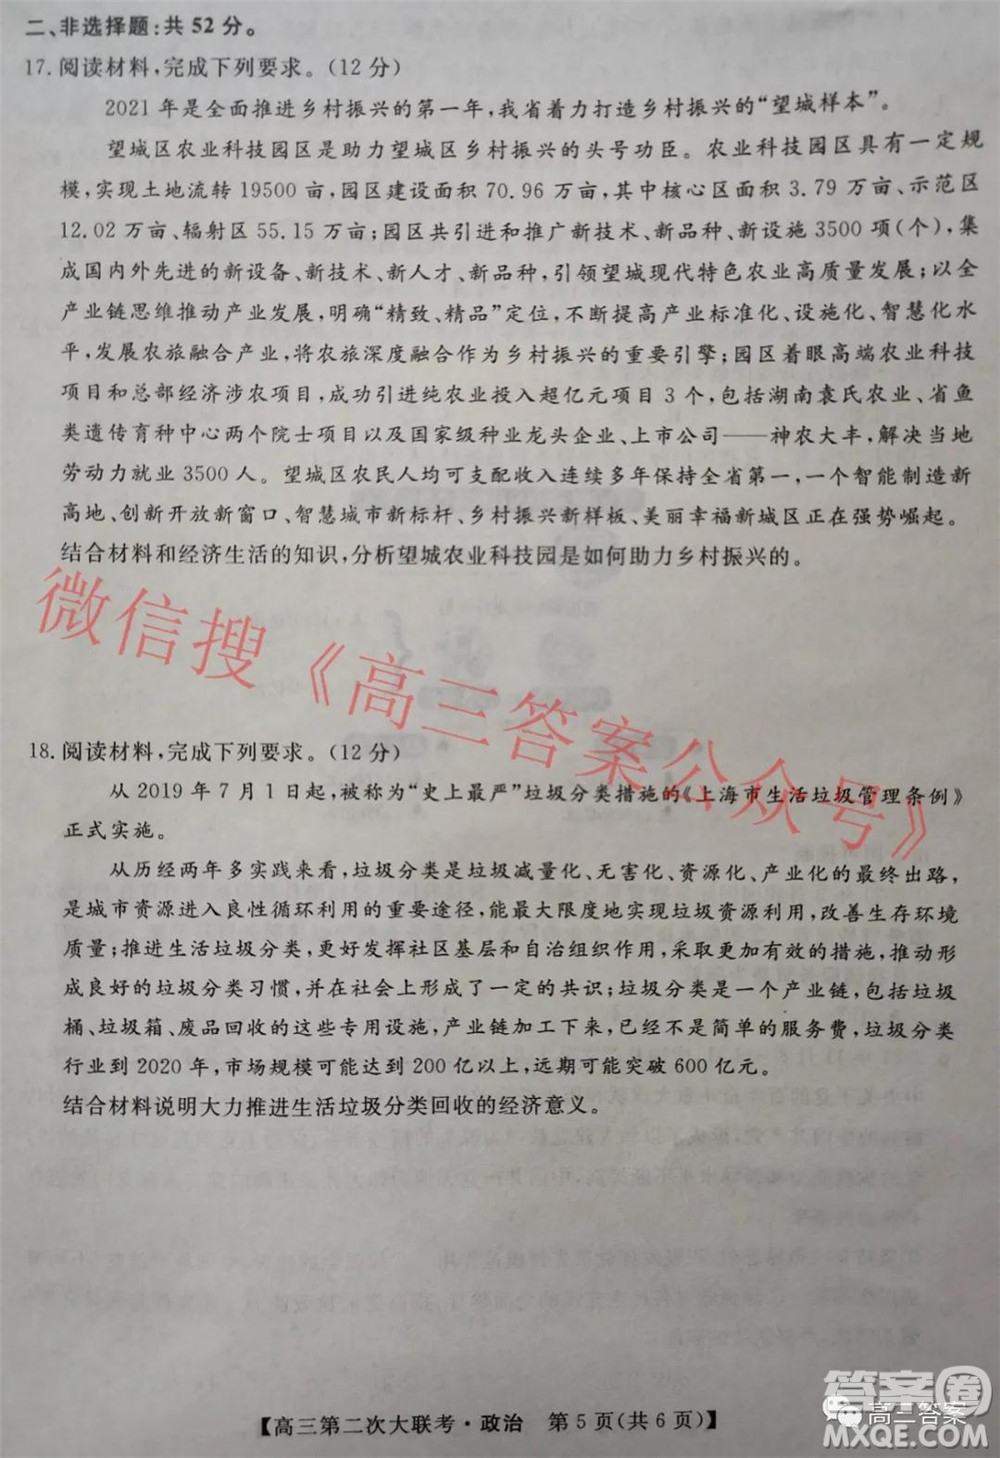 二、非选择题:共 52 分。
17. 阅读材料,完成下列要求。(12 分)
2021 年是全面推进乡村振兴的第一年,我省着力打造乡村振兴的“望城样本”。
望城区农业科技园区是助力望城区乡村振兴的头号功臣。农业科技园区具有一定规
模,实现土地流转 19500 亩,园区建设面积 70.96 万亩,其中核心区 3.79 万亩、示范区
12.02 万亩、辐射区 55.15 万亩;园区共引进和推广新技术、新品种、新设施 3500 项(个),集
成国内外先进的新设备、新技术、新人才、新品种,引领望城现代特色农业高质量发展;以全
产业链思维推动产业发展,明确“精致、精品”定位,不断提高产业标准化、设施化、智慧化水
平,发展农旅融合产业,将农旅深度融合作为乡村振兴的重要引擎;园区着眼高端农业科技
项目和总部经济涉农项目,成功引进纯农业投入超亿元项目 3 个,包括湖南袁氏农业、省鱼
类遗传育种中心两个院士项目以及国家级种业龙头企业、上市公司——神农大丰,解决当地
劳动力就业 3500 人。望城区农民人均可支配收入连续多年保持全省第一,一个智能制造新
高地、创新开放新窗口、智慧城市新标杆、乡村振兴新样板、美丽幸福新城区正在强势崛起。
结合材料和经济生活的知识,分析望城农业科技园是如何助力乡村振兴的。
微信搜《高三答案公众号》
18. 阅读材料,完成下列要求。(12 分)
从 2019 年 7 月 1 日起,被称为“史上最严”垃圾分类措施的《上海市生活垃圾管理条例》
正式实施。
从历经两年多实践来看,垃圾分类是垃圾减量化、无害化、资源化、产业化的最终出路,
是城市资源进入良性循环利用的重要途径,能最大限度地实现垃圾资源利用,改善生存环境
质量;推进生活垃圾分类,更好发挥社区基层和自治组织作用,采取更加有效的措施,推动形
成良好的垃圾分类习惯,并在社会上形成了一定的共识;垃圾分类是一个产业链,包括垃圾
桶、垃圾箱、废品回收的这些专用设施,产业链加工下来,已经不是简单的服务费,垃圾分类
行业到 2020 年,市场规模可能达到 200 亿以上,远期可能突破 600 亿元。
结合材料说明大力推进生活垃圾分类回收的经济意义。
【高三第二次大联考·政治 第 5 页(共 6 页)】
答案圈
高三答案
MXQE.COM